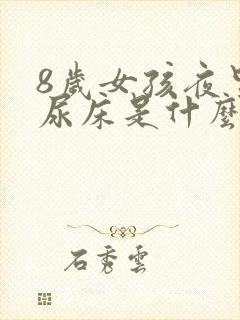 8歲女孩夜里
尿床是什麼
石秀雲